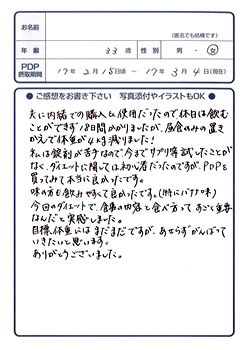 お名前
(匿名でも結構です)
年齢 33歳 性別 男・女
PDP摂取期間 17年2月15日頃 ～ 17年3月4日(現在)
● ご感想をお書き下さい 写真添付やイラストもOK ●
夫に内緒での購入&使用だったので休日は飲む
ことができず18日間かかりましたが、昼食のみの置き
かえで体重が4kg減りました!
私は錠剤が苦手なので今までサプリ等試したことが
なく、ダイエットに関しては初心者だったのですが、PDPを
買ってみて本当に良かったです。
味の方も飲みやすくて良かったです。(特にバナナ味)
今回のダイエットで、食事の内容と食べ方って、すごく重要
なんだと実感しました。
目標体重にはまだまだですが、あせらずがんばって
いきたいと思います。
ありがとうございました。